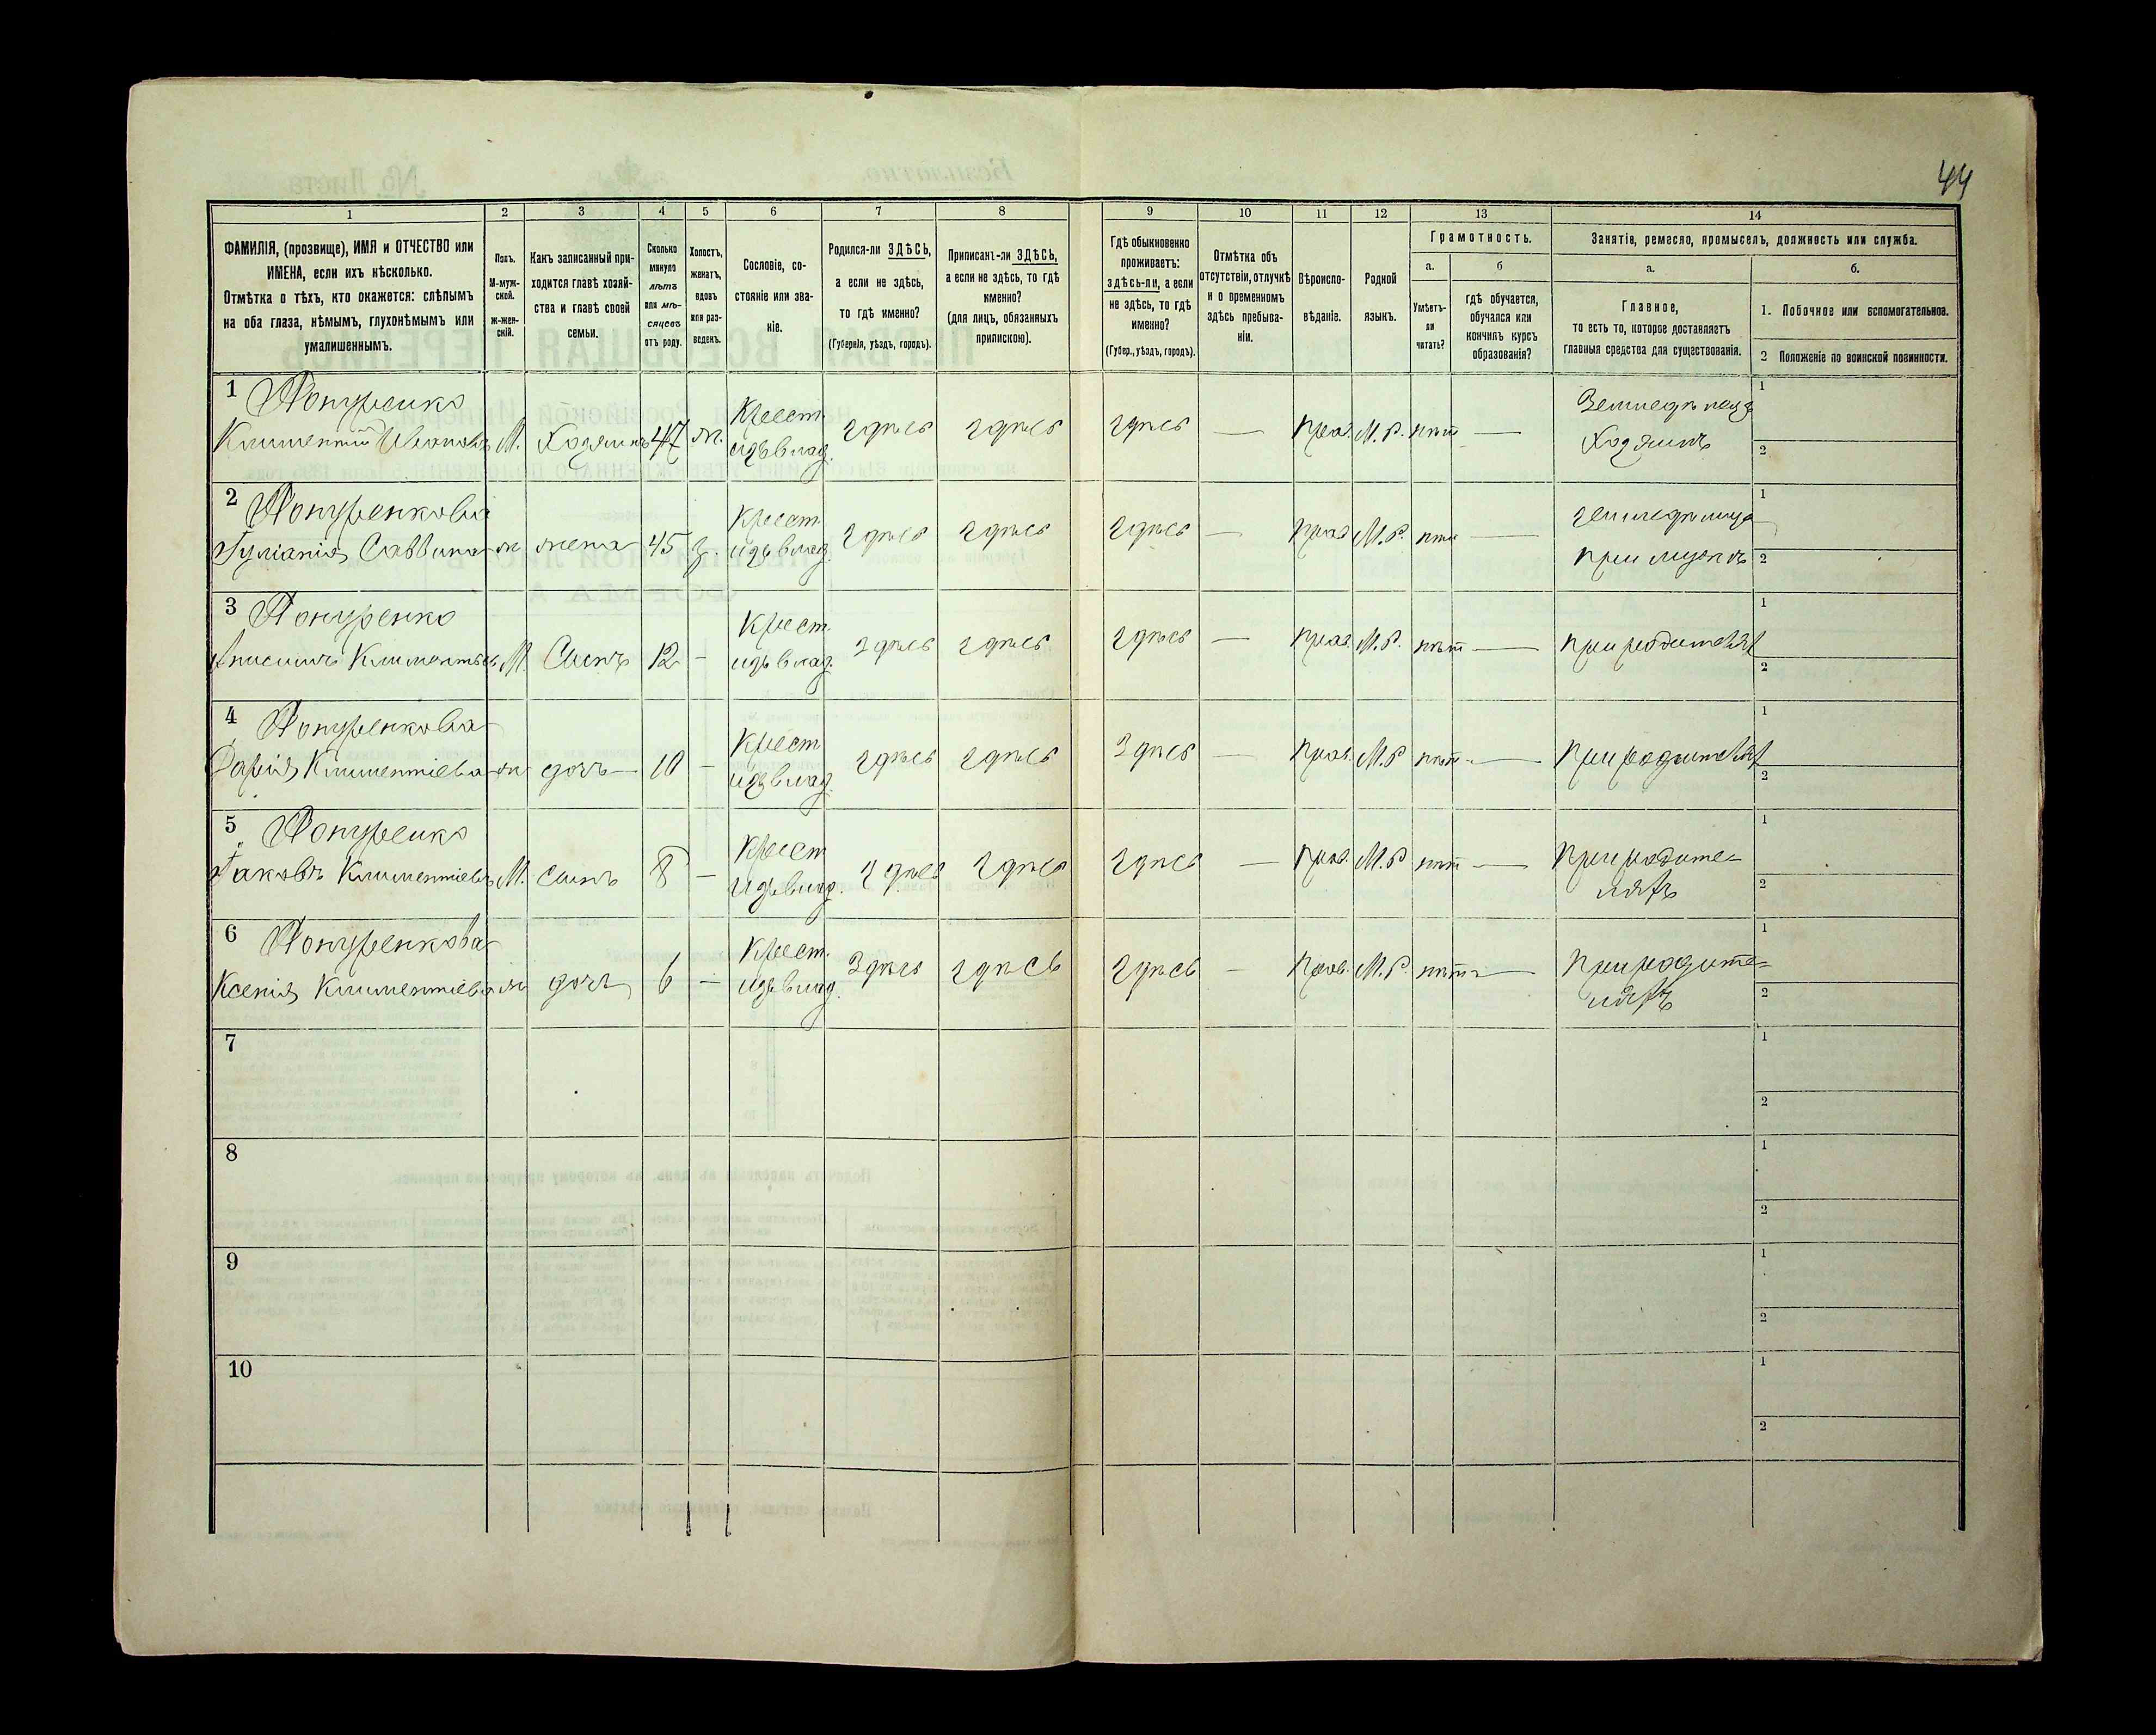 44
1 2 3 4 5 6 7 8 9 10 11 12 13 14
ФАМИЛІЯ, (прозвище), ИМЯ и ОТЧЕСТВО или
ИМЕНА, если ихъ нѣсколько.
Отмѣтка о тѣхъ, кто окажется: слѣпымъ
на оба глаза, нѣмымъ, глухонѣмымъ или
умалишеннымъ.
Полъ.
М-муж-
ской.
ж-жен-
скій.
Какъ записанный при-
ходится главѣ хозяй-
ства и главѣ своей
семьи.
Сколько
минуло
лѣтъ
или мѣ-
сяцевъ
отъ роду.
Холостъ,
женатъ,
вдовъ
или раз-
веденъ.
Сословіе, со-
стояніе или зва-
ніе.
Родился-ли ЗДѢСЬ,
а если не здѣсь,
то гдѣ именно?
(Губернія, уѣздъ, городъ).
Приписанъ-ли ЗДѢСЬ,
а если не здѣсь, то гдѣ
именно?
(для лицъ, обязанныхъ
припискою).
Гдѣ обыкновенно
проживаетъ:
здѣсь-ли, а если
не здѣсь, то гдѣ
именно?
(Губер., уѣздъ, городъ).
Отмѣтка объ
отсутствіи, отлучкѣ
и о временномъ
здѣсь пребыва-
ніи.
Вѣроиспо-
вѣданіе.
Родной
языкъ.
Грамотность.
а.
Умѣетъ-
ли
читать?
б
гдѣ обучается,
обучался или
кончилъ курсъ
образованія?
Занятіе, ремесло, промыселъ, должность или служба.
а.
Главное,
то есть то, которое доставляетъ
главныя средства для существованія.
б.
1. Побочное или вспомогательное.
2 Положеніе по воинской повинности.
1 Попуренко
Климентій Ивановъ М. Хозяинъ 47 ж. Крест. издѣвлад. здѣсь здѣсь здѣсь — Прав. М.Р. нѣт — Земледѣлецъ
Хозяинъ
1
2
2 Попуренкова
Іуліанія Саввина ж жена 45 з. Крест. издѣвлад. здѣсь здѣсь здѣсь — Прав. М.Р. нѣт — земледѣлица
при мужѣ
1
2
3 Попуренко
Анисимъ Климентьев М. Сынъ 12 — Крест. издѣвлад. здѣсь здѣсь здѣсь — Прав. М.Р. нѣт — при родителях
1
2
4 Попуренкова
Дарія Климентіева ж дочь 10 — Крест издѣвлад. здѣсь здѣсь здѣсь — Прав. М.Р нѣт — При родителях
1
2
5 Попуренко
Іаковъ Климентіевъ М. сынъ 8 — Крест издѣвлад. здѣсь здѣсь здѣсь — Прав. М.Р нѣт — При родите=
ляхъ
1
2
6 Попуренкова
Ксенія Климентіева ж дочь 6 — Крест. издѣвлад. здѣсь здѣсь здѣсь — Прав. М.Р. нѣт — При родите=
ляхъ
1
2
7
1
2
8
1
2
9
1
2
10
1
2